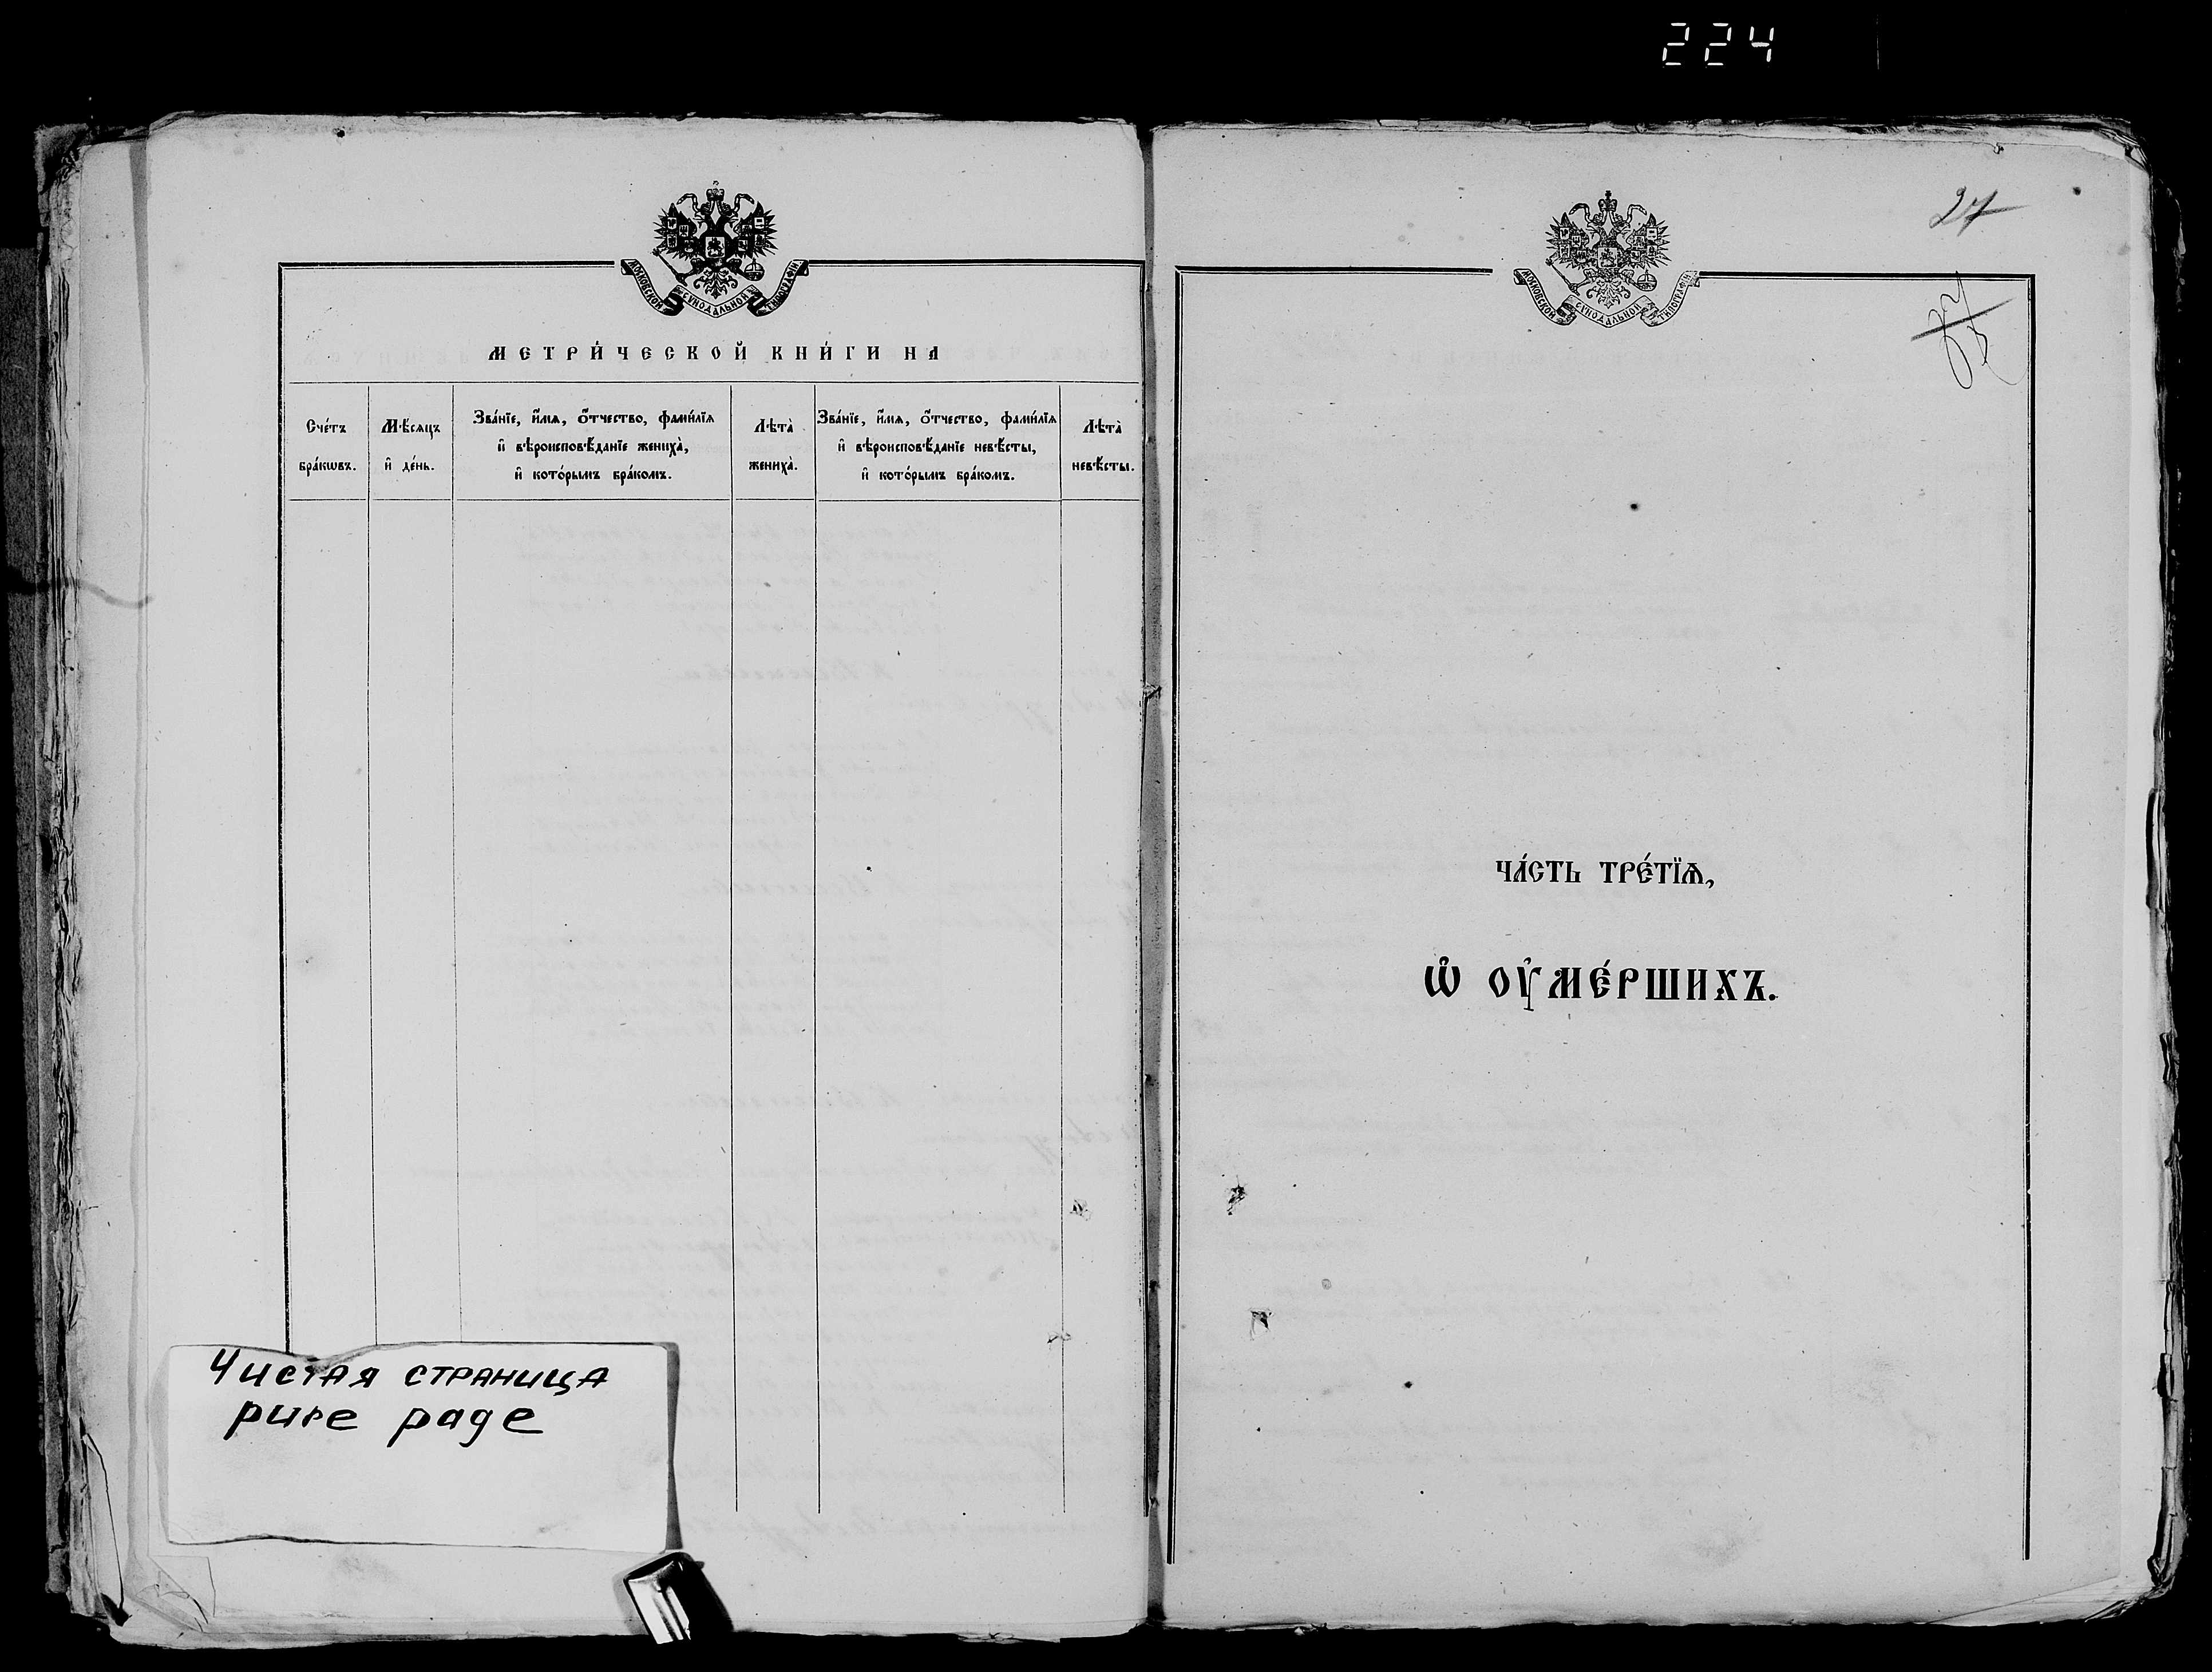 224
МОСКОВСКОЙ СѴНОДАЛЬНОЙ ТИПОГРАФІИ
МЕТРИ́ЧЕСКОЙ КНИ́ГИ НА
Сче́тъ
бра́кѡвъ.
Мѣ́сяцъ
и҆ де́нь.
Зва́нїе, и҆́мѧ, ѻ҆́тчество, фами́лїѧ
и҆ вѣроисповѣ́данїе жениха̀,
и҆ кото́рымъ бра́комъ.
Лѣта̀
жениха̀.
Зва́нїе, и҆́мѧ, ѻ҆́тчество, фами́лїѧ
и҆ вѣроисповѣ́данїе невѣ́сты,
и҆ кото́рымъ бра́комъ.
Лѣта̀
невѣ́сты.
Чистая страница
pure page
27
МОСКОВСКОЙ СѴНОДАЛЬНОЙ ТИПОГРАФІИ
ЧА́СТЬ ТРЕ́ТЇѦ,
Ѡ҆ ОУ҆МЕ́РШИХЪ.